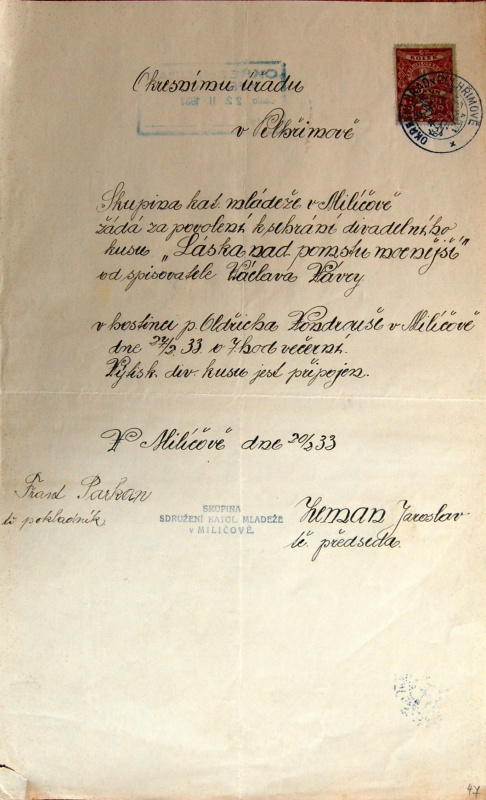 KOLEK
Okresnímu úřadu
v Pelhřimově
22 II
Skupina kat. mládeže v Milíčově
žádá za povolení k sehrání divadelního
kusu „Láska nad pomstu mocnější"
od spisovatele Václava Vávry
v hostinci p. Oldřicha Vondruše v Milíčově
dne 27/2 33 o 7 hod večerní.
Výtisk. div. kusu jest připojen.
V Milíčově dne 20/2 33
Frant Parkan
tč pokladník
SKUPINA
SDRUŽENÍ KATOL. MLÁDEŽE
v MILÍČOVĚ.
Zeman Jaroslav
tč. předseda.
47